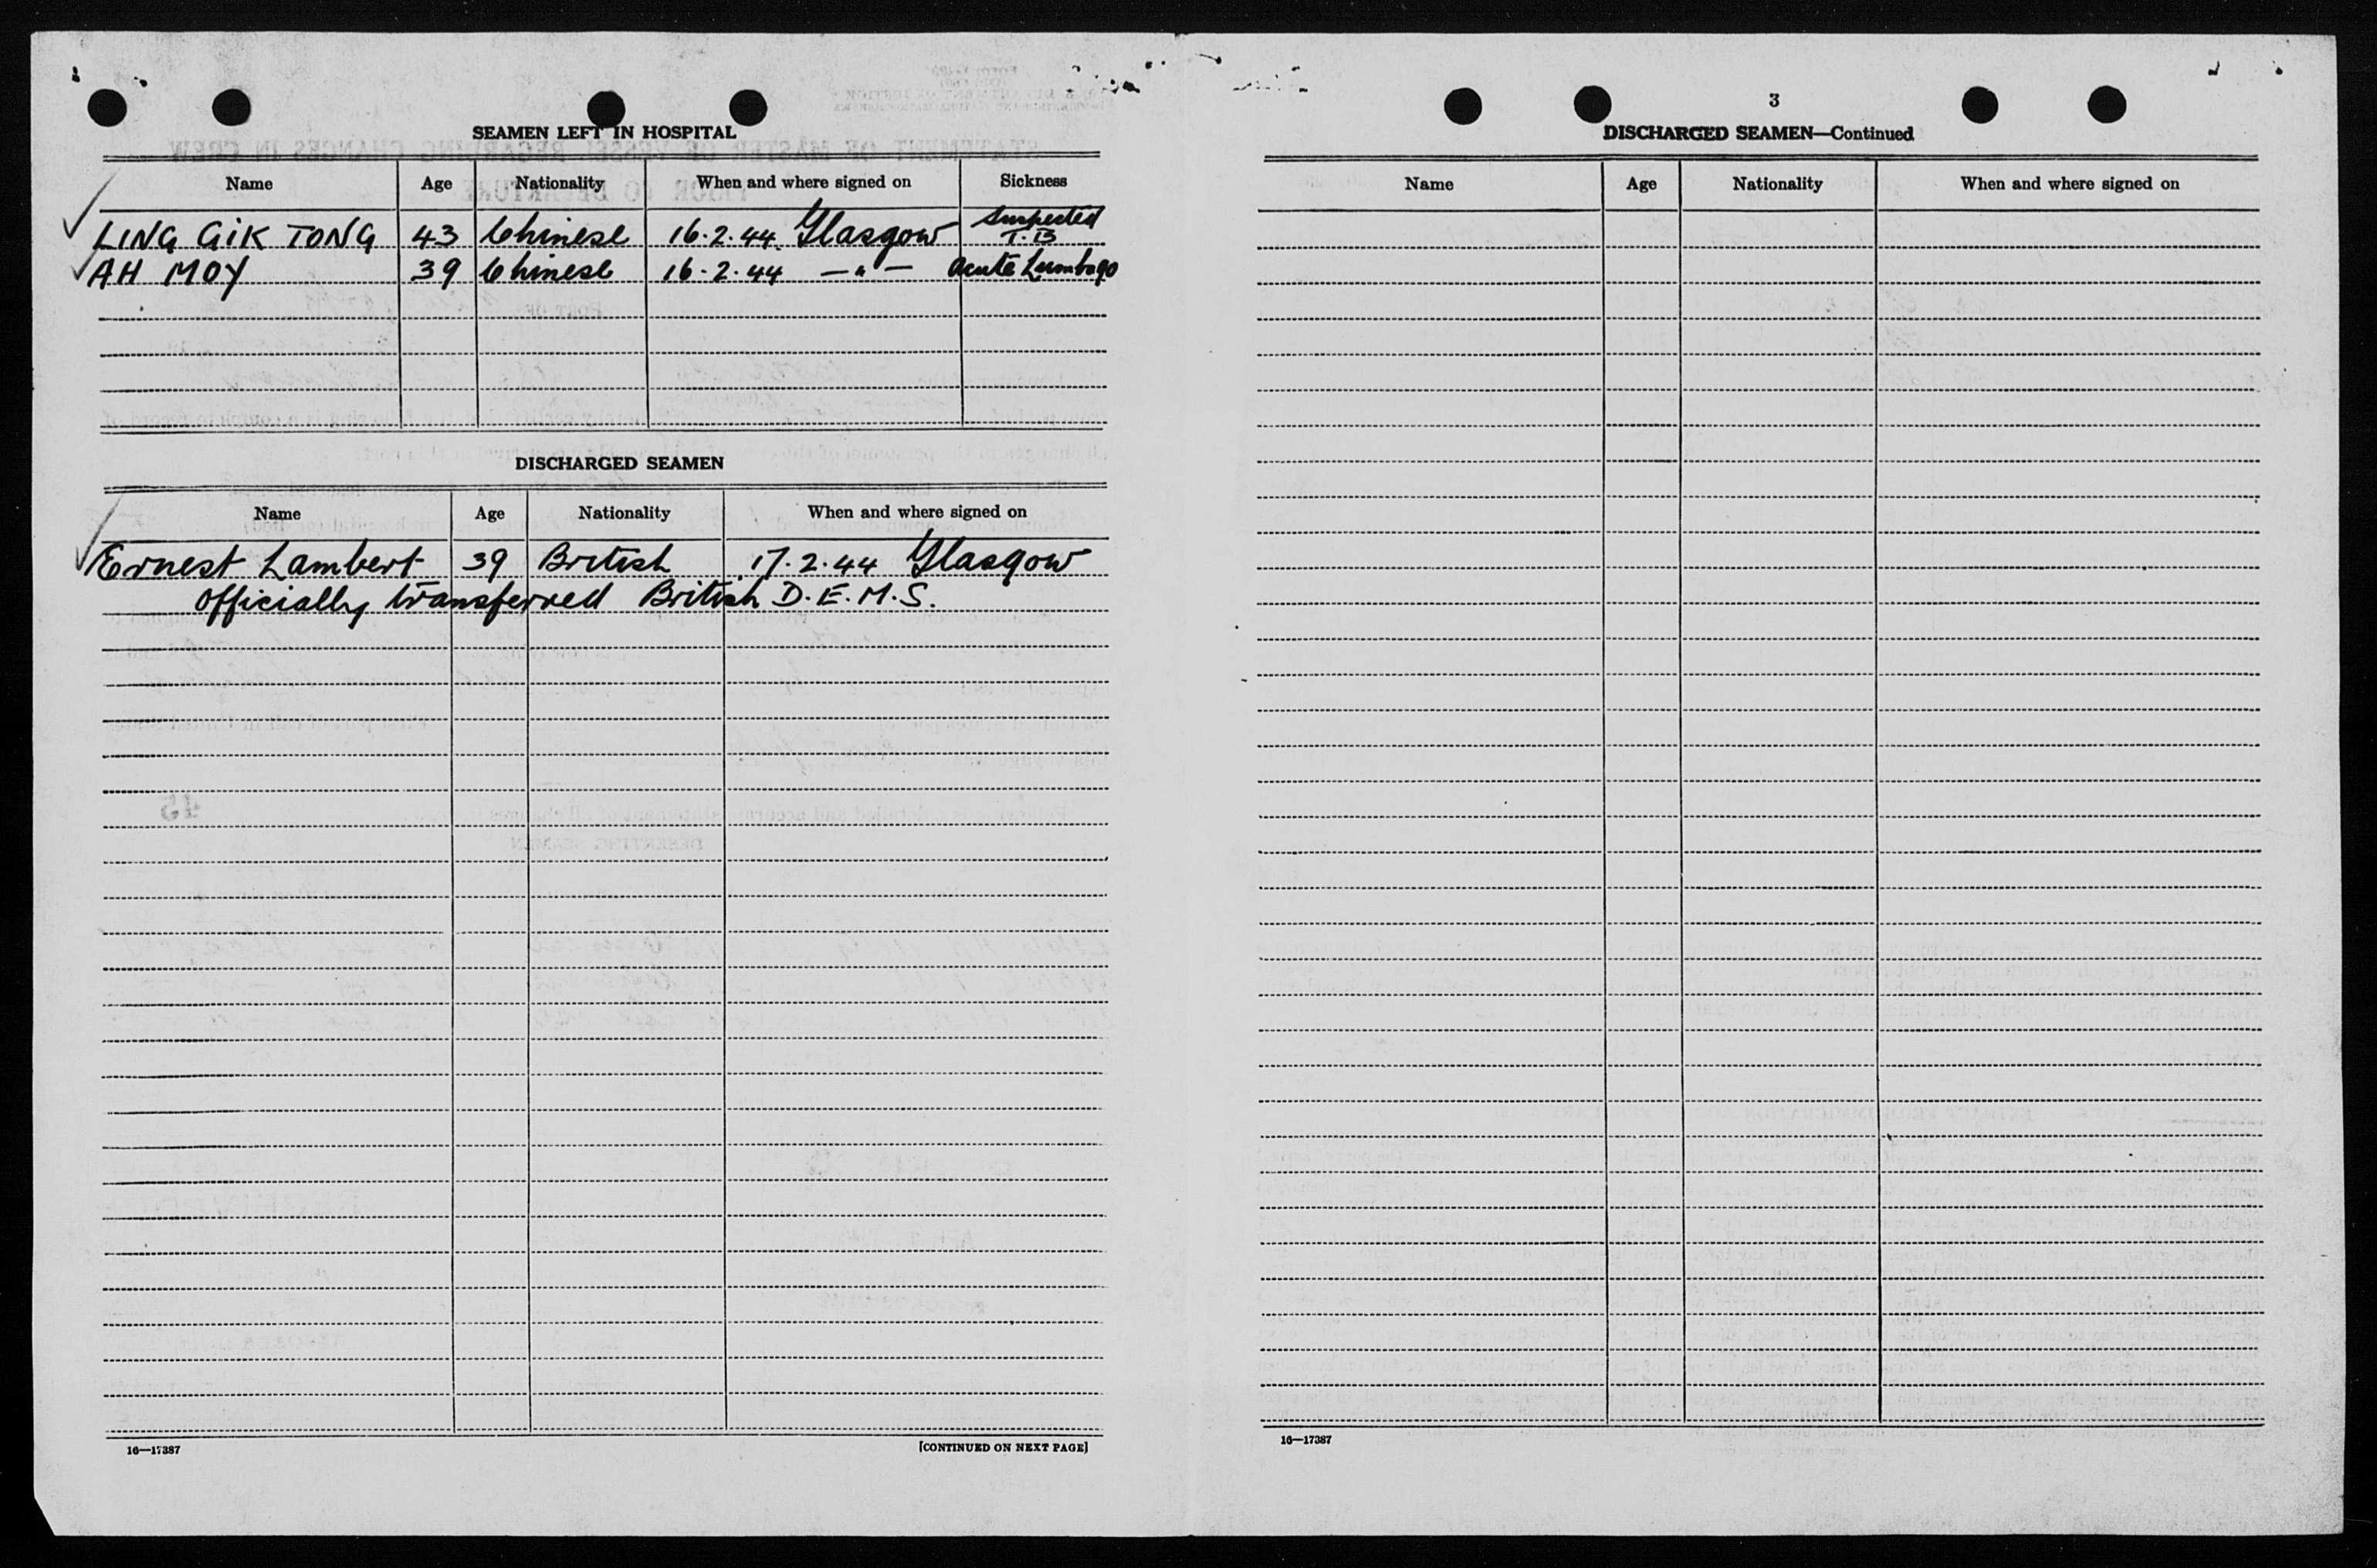 SEAMEN LEFT IN HOSPITAL
Name Age Nationality When and where signed on Sickness
LING GIK TONG 43 Chinese 16.2.44. Glasgow Suspected T.B
AH MOY 39 Chinese 16.2.44 — " — Acute Lumbago
DISCHARGED SEAMEN
Name Age Nationality When and where signed on
Ernest Lambert 39 British 17.2.44 Glasgow
Officially transferred British D.E.M.S.
16—17387 [CONTINUED ON NEXT PAGE]
3
DISCHARGED SEAMEN—Continued
Name Age Nationality When and where signed on
16—17387